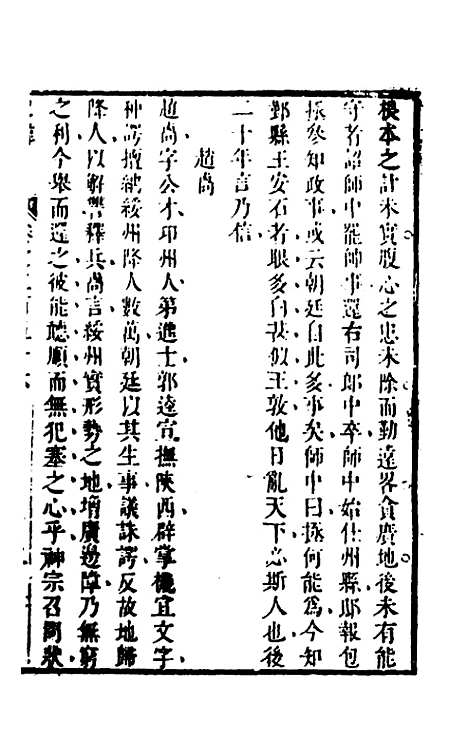 根本之計未實腹心之患未除而勤遠畧貪廣地後未有能
守者詔師中罷師事還右司郎中卒師中始仕州縣邸報包
拯參知政事或云朝廷自此多事矣師中曰拯何能為今知
鄞縣王安石者眼多白甚似王敦他日亂天下必斯人也後
二十年言乃信
趙卨
趙卨字公才邛州人第進士郭逵宣撫陝西辟掌機宜文字
种諤擅納綏州降人數萬朝廷以其生事議誅諤反故地歸
降人以解讐釋兵卨言綏州實形勢之地增廣邊障乃無窮
之利今舉而還之彼能聽順而無犯塞之心乎神宗召問狀